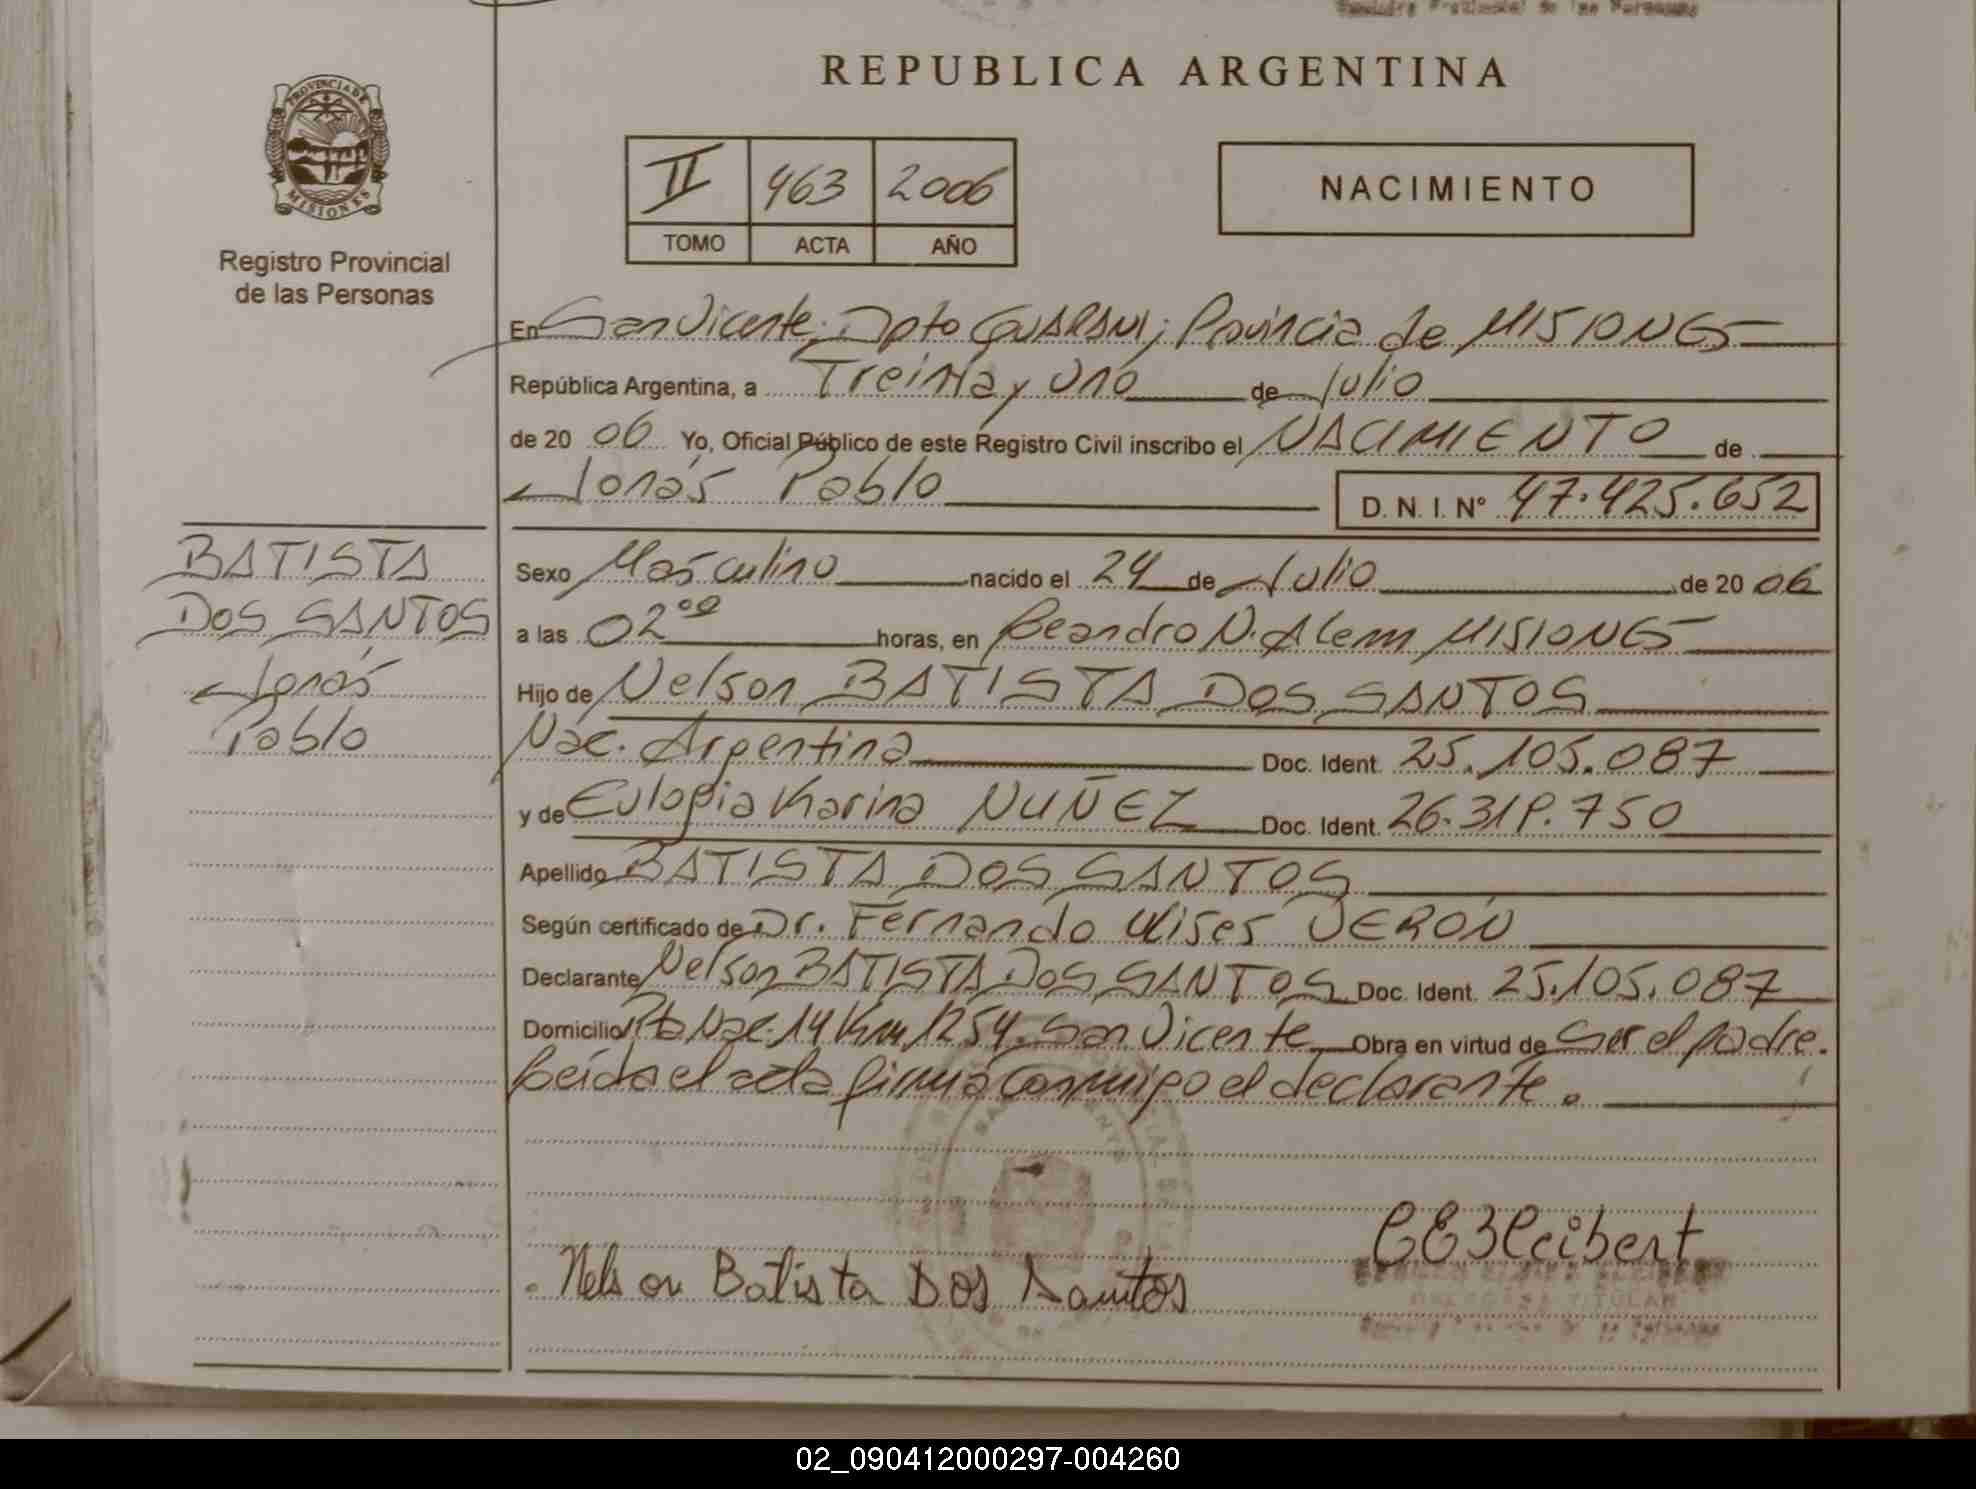 REPUBLICA ARGENTINA
PROVINCIA DE MISIONES
Registro Provincial
de las Personas
II 463 2006
TOMO ACTA AÑO
NACIMIENTO
En San Vicente; Dpto GUARANI; Provincia de MISIONES
República Argentina, a Treinta y Uno de Julio
de 20 06 Yo, Oficial Público de este Registro Civil inscribo el NACIMIENTO de
Jonás Pablo D. N. I. Nº 47.425.652
BATISTA
DOS SANTOS
Jonás
Pablo
Sexo Masculino nacido el 24 de Julio de 20 06
a las 02⁰⁰ horas, en Leandro N. Alem MISIONES
Hijo de Nelson BATISTA DOS SANTOS
Nac. Argentina Doc. Ident. 25.105.087
y de Eulogia Karina NUÑEZ Doc. Ident. 26.319.750
Apellido BATISTA DOS SANTOS
Según certificado de Dr. Fernando Ulises VERÓN
Declarante Nelson BATISTA DOS SANTOS Doc. Ident. 25.105.087
Domicilio Rta Nac. 14 Km 1254. San Vicente Obra en virtud de Ser el padre.
Leída el acta firma conmigo el declarante.
Nelson Batista Dos Santos
TITULAR
02_090412000297-004260